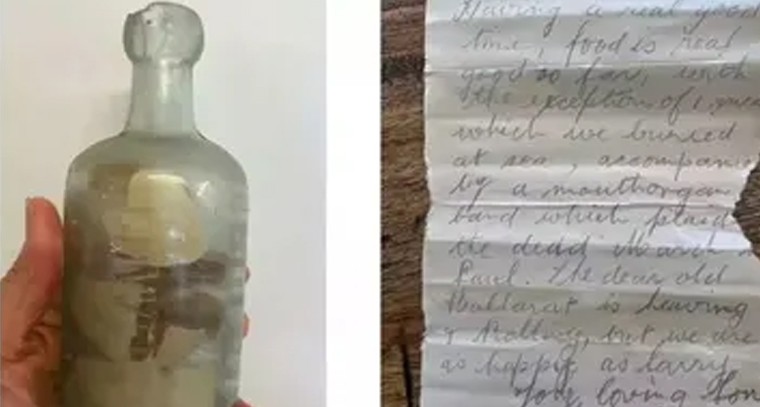 Having a real good
time, food is real
good so far, with
the exception of 1 mea
which we buried
at sea, accompanie
by a mouthorgan
band which plaid
the dead March
Paul. The dear old
Ballarat is heaving
& Rolling, but we are
as happy as Larry
Your loving Son